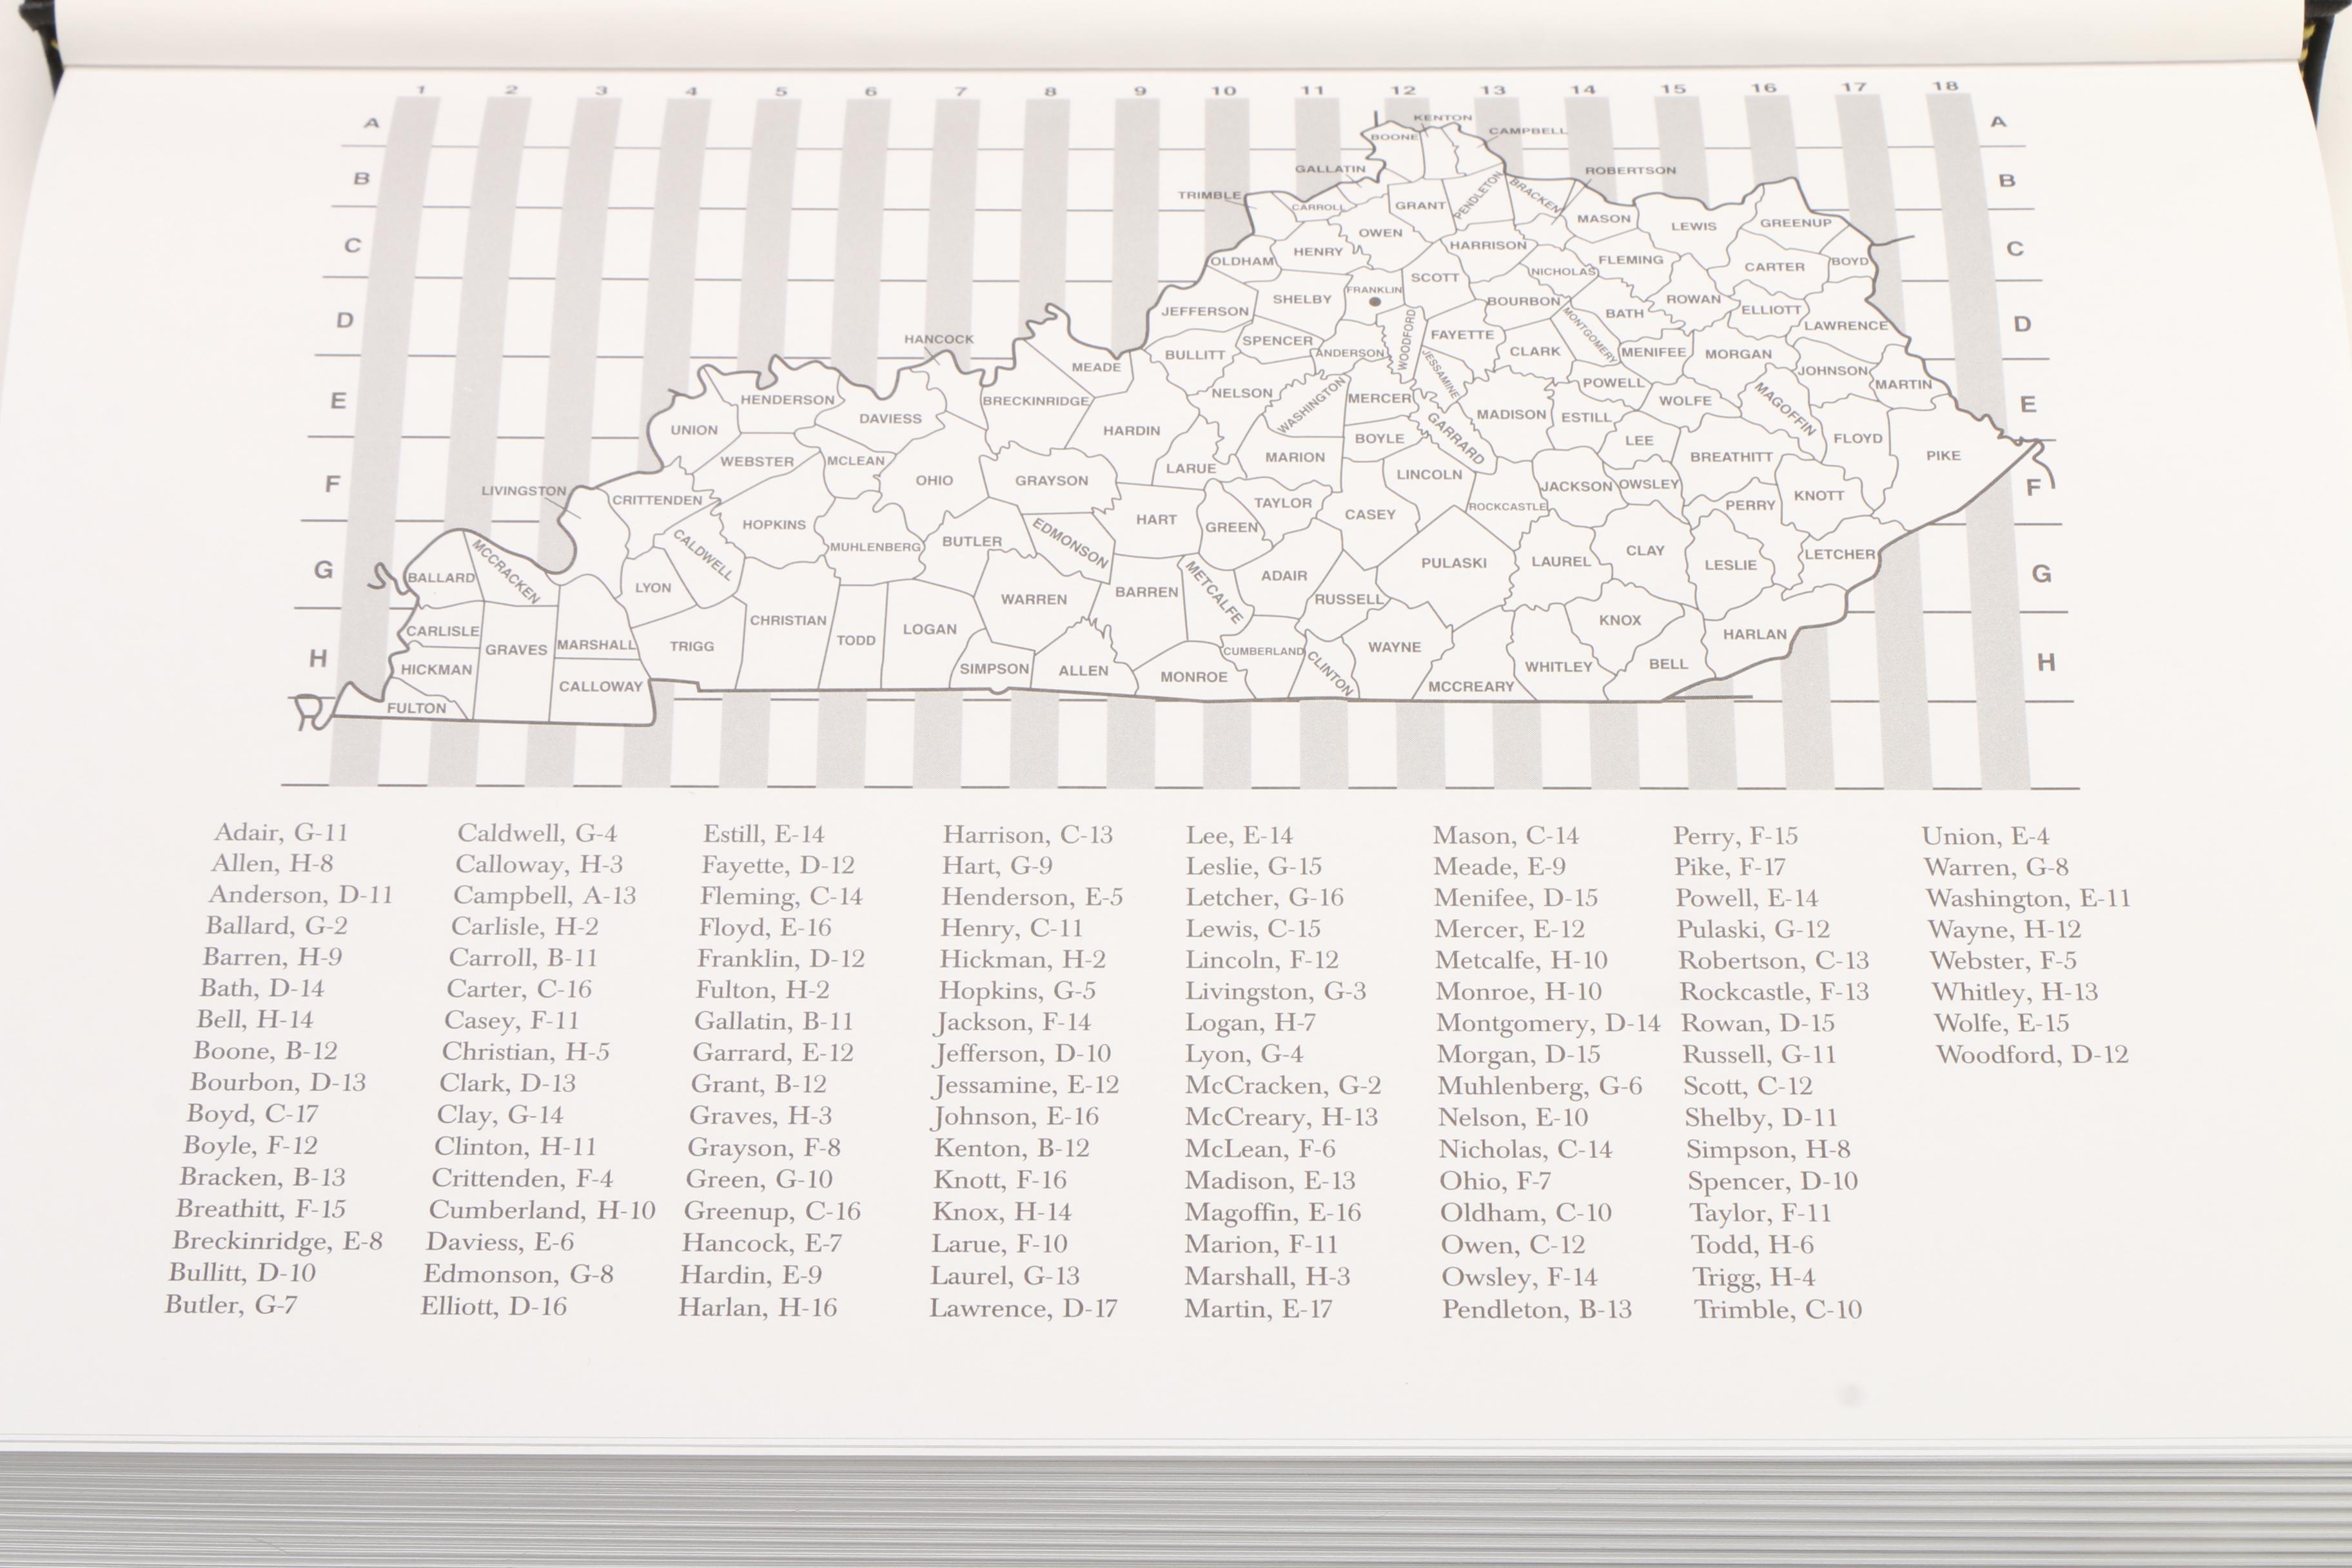 1 2 3 4 5 6 7 8 9 10 11 12 13 14 15 16 17 18
A A
B B
C C
D D
E E
F F
G G
H H
KENTON
BOONE
CAMPBELL
GALLATIN
ROBERTSON
TRIMBLE
CARROLL
GRANT
PENDLETON
BRACKEN
MASON
LEWIS
GREENUP
OWEN
HENRY
HARRISON
OLDHAM
FLEMING
NICHOLAS
CARTER
BOYD
SCOTT
SHELBY
FRANKLIN
BOURBON
ROWAN
JEFFERSON
BATH
ELLIOTT
LAWRENCE
WOODFORD
FAYETTE
MONTGOMERY
HANCOCK
SPENCER
BULLITT
ANDERSON
CLARK
MENIFEE
MORGAN
MEADE
JESSAMINE
JOHNSON
MARTIN
HENDERSON
DAVIESS
BRECKINRIDGE
NELSON
WASHINGTON
MERCER
POWELL
WOLFE
MAGOFFIN
MADISON
ESTILL
UNION
HARDIN
BOYLE
GARRARD
LEE
FLOYD
WEBSTER
MCLEAN
MARION
BREATHITT
PIKE
LARUE
LINCOLN
OHIO
GRAYSON
JACKSON
OWSLEY
LIVINGSTON
CRITTENDEN
TAYLOR
ROCKCASTLE
PERRY
KNOTT
HOPKINS
HART
GREEN
CASEY
CALDWELL
MUHLENBERG
BUTLER
EDMONSON
CLAY
LETCHER
MCCRACKEN
BALLARD
LYON
ADAIR
PULASKI
LAUREL
LESLIE
WARREN
BARREN
METCALFE
RUSSELL
CARLISLE
CHRISTIAN
LOGAN
KNOX
HARLAN
GRAVES
MARSHALL
TRIGG
TODD
CUMBERLAND
WAYNE
HICKMAN
SIMPSON
ALLEN
MONROE
CLINTON
WHITLEY
BELL
CALLOWAY
MCCREARY
FULTON
Adair, G-11
Allen, H-8
Anderson, D-11
Ballard, G-2
Barren, H-9
Bath, D-14
Bell, H-14
Boone, B-12
Bourbon, D-13
Boyd, C-17
Boyle, F-12
Bracken, B-13
Breathitt, F-15
Breckinridge, E-8
Bullitt, D-10
Butler, G-7
Caldwell, G-4
Calloway, H-3
Campbell, A-13
Carlisle, H-2
Carroll, B-11
Carter, C-16
Casey, F-11
Christian, H-5
Clark, D-13
Clay, G-14
Clinton, H-11
Crittenden, F-4
Cumberland, H-10
Daviess, E-6
Edmonson, G-8
Elliott, D-16
Estill, E-14
Fayette, D-12
Fleming, C-14
Floyd, E-16
Franklin, D-12
Fulton, H-2
Gallatin, B-11
Garrard, E-12
Grant, B-12
Graves, H-3
Grayson, F-8
Green, G-10
Greenup, C-16
Hancock, E-7
Hardin, E-9
Harlan, H-16
Harrison, C-13
Hart, G-9
Henderson, E-5
Henry, C-11
Hickman, H-2
Hopkins, G-5
Jackson, F-14
Jefferson, D-10
Jessamine, E-12
Johnson, E-16
Kenton, B-12
Knott, F-16
Knox, H-14
Larue, F-10
Laurel, G-13
Lawrence, D-17
Lee, E-14
Leslie, G-15
Letcher, G-16
Lewis, C-15
Lincoln, F-12
Livingston, G-3
Logan, H-7
Lyon, G-4
McCracken, G-2
McCreary, H-13
McLean, F-6
Madison, E-13
Magoffin, E-16
Marion, F-11
Marshall, H-3
Martin, E-17
Mason, C-14
Meade, E-9
Menifee, D-15
Mercer, E-12
Metcalfe, H-10
Monroe, H-10
Montgomery, D-14
Morgan, D-15
Muhlenberg, G-6
Nelson, E-10
Nicholas, C-14
Ohio, F-7
Oldham, C-10
Owen, C-12
Owsley, F-14
Pendleton, B-13
Perry, F-15
Pike, F-17
Powell, E-14
Pulaski, G-12
Robertson, C-13
Rockcastle, F-13
Rowan, D-15
Russell, G-11
Scott, C-12
Shelby, D-11
Simpson, H-8
Spencer, D-10
Taylor, F-11
Todd, H-6
Trigg, H-4
Trimble, C-10
Union, E-4
Warren, G-8
Washington, E-11
Wayne, H-12
Webster, F-5
Whitley, H-13
Wolfe, E-15
Woodford, D-12